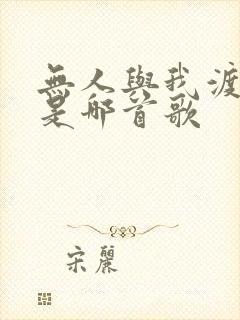 無人與我渡
是哪首歌
宋麗